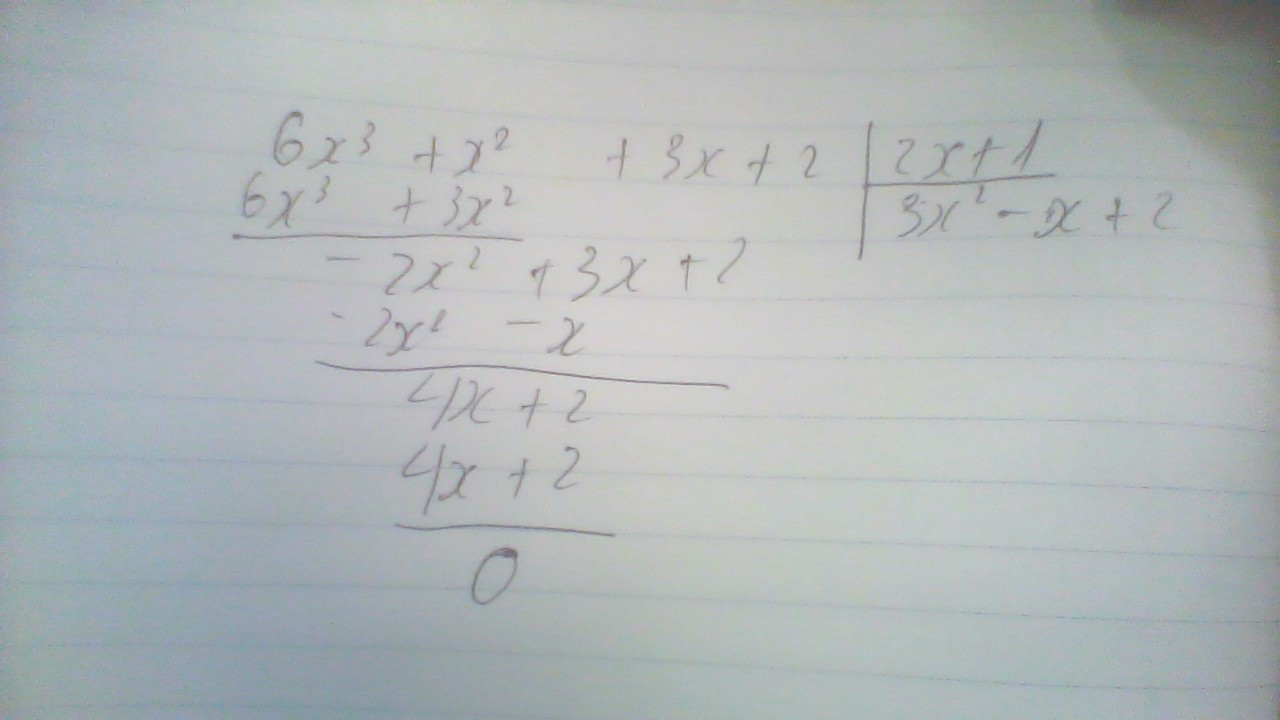 6x³ + x² + 3x + 2 | 2x + 1
6x³ + 3x² | 3x² - x + 2
- 2x² + 3x + 2
- 2x² - x
4x + 2
4x + 2
0